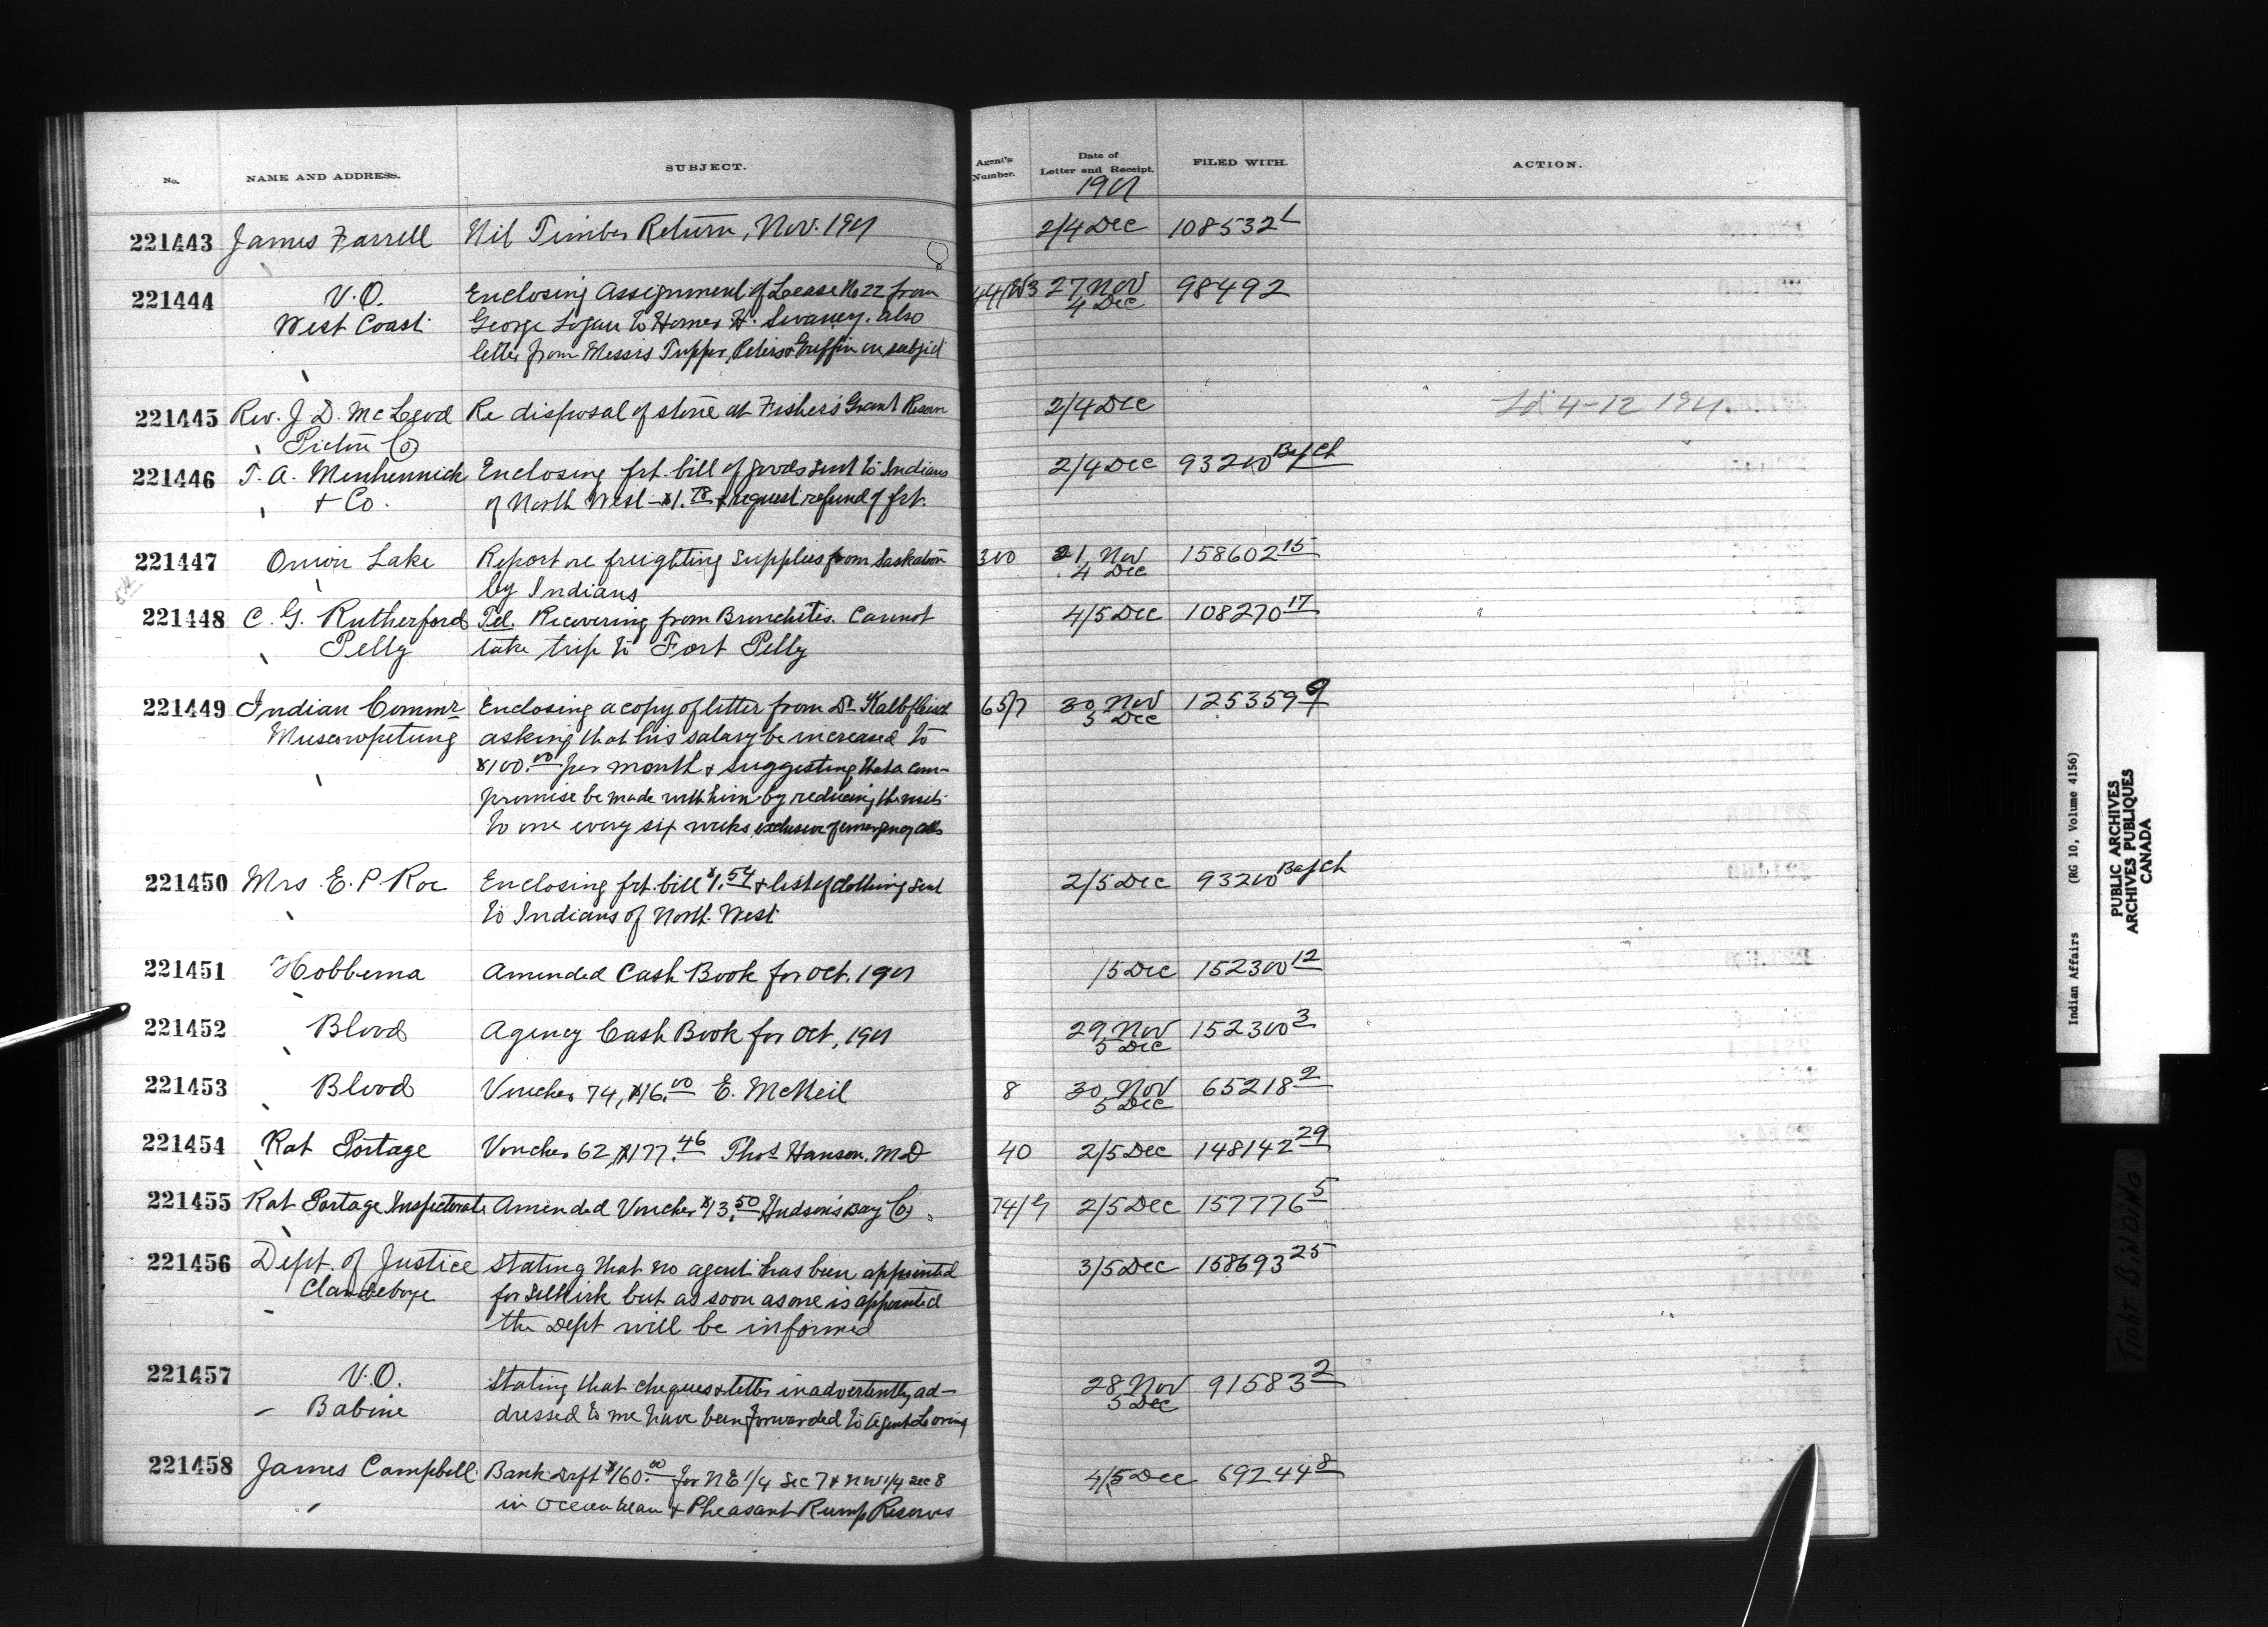 No.
NAME AND ADDRESS.
SUBJECT.
Agent's Number.
Date of Letter and Receipt.
FILED WITH.
ACTION.
1901
221443 James Farrell Nil Timber Return, Nov. 1901 2/4 Dec 108532
221444 V.O. Enclosing Assignment of Lease No 22 from 27 Nov 98492
West Coast George Logan to Homer H. Swaney. also 4 Dec
letter from Messrs Tupper, Peters & Griffin on subject
221445 Rev. J. D. McLeod Re disposal of stone at Fisher's Grant Reserve 2/4 Dec 4-12 1901
Pictou Co
221446 T. A. Menhennick Enclosing frt. bill of goods sent to Indians 2/4 Dec 93200
& Co. of North West - $1.78 & request refund of frt.
221447 Onion Lake Report re freighting Supplies from Saskatoon 300 21 Nov 158602 15
by Indians 4 Dec
221448 C. G. Rutherford Tel. Recovering from Bronchitis. Cannot 4/5 Dec 108270 17
Pelly take trip to Fort Pelly
221449 Indian Commr Enclosing a copy of letter from Dr Kalbfleisch 65/7 30 Nov 125359 9
Muscowpetung asking that his salary be increased to 5 Dec
$100.00 per month & suggesting that a com-
promise be made with him by reducing the visits
to one every six weeks, exclusive of emergency calls
221450 Mrs E. P Roe Enclosing frt. bill $1.54 & list of clothing sent 2/5 Dec 93200
to Indians of North West
221451 Hobbema Amended Cash Book for Oct. 1901 /5 Dec 152300 12
221452 Blood Agency Cash Book for Oct, 1901 29 Nov 152300 3
5 Dec
221453 Blood Voucher 74, $16.00 E. McNeil 8 30 Nov 65218 2
5 Dec
221454 Rat Portage Voucher 62, $177.46 Thos Hanson. M.D 40 2/5 Dec 148142 29
221455 Rat Portage Inspectorate Amended Voucher $13.50 Hudson's Bay Co. 74/ 2/5 Dec 157776 5
221456 Dept. of Justice Stating that no agent has been appointed 3/5 Dec 158693 25
Clandeboye for Selkirk but as soon as one is appointed
the Dept will be informed
221457 V.O. Stating that cheques & letter inadvertently ad- 28 Nov 91583 2
Babine dressed to me have been forwarded to Agent Loring 5 Dec
221458 James Campbell Bank Drft $160.00 for NE 1/4 Sec 7 & NW 1/4 Sec 8 4/5 Dec 69244 8
in Ocean Man & Pheasant Rump Reserves
Indian Affairs (RG 10, Volume 4156)
PUBLIC ARCHIVES
ARCHIVES PUBLIQUES
CANADA
TIGHT BINDING